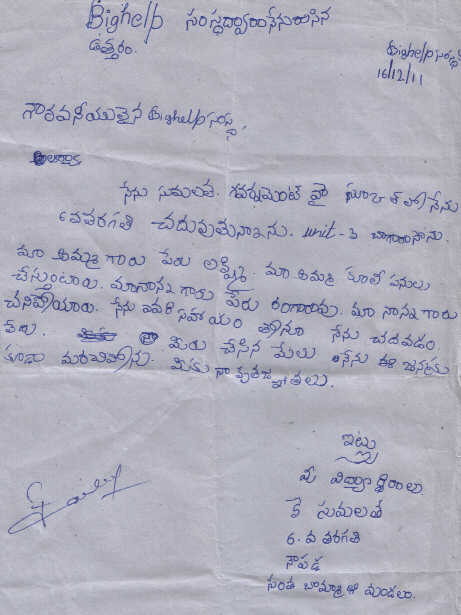 Bighelp సంస్థద్వారానేనురాసిన
ఉత్తరం.
Bighelp సంస్థ
16/12/11
గౌరవనీయులైన Bighelp సంస్థ,
నేను సుమలత. గవర్నమెంట్ హై స్కూల్ లో నేను
6 వ తరగతి చదువుతున్నాను. unit-3 బాగారాసాను.
మా అమ్మ గారు పేరు లక్ష్మి. మా అమ్మ కూలి పనులు
చేస్తుంటారు. మానాన్న గారు పేరు రంగారావు. మా నాన్న గారు
చనిపోయారు. నేను ఎవరి సహాయం తోనూ నేను చదవడం
లేదు. మీరు చేసిన మేలు నేను ఈ జన్మకు
కూడా మరచిపోను. మీకు నా కృతజ్ఞతలు.
ఇట్లు
మీ విద్యార్థిరాలు
కె సుమలత
6. వ తరగతి
సంత బొమ్మాళి మండలం.